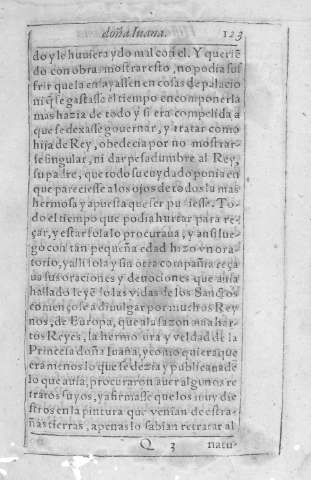 doña Iuana. 123
do y le huviera ydo mal con el. Y querié
do con obra mostrar esto, no podia suf
frir que la ensayassen en cosas de palacio
ni q̃ se gastasse el tiempo en componerla
mas hazia de todo y si era compelida a
que se dexasse governar, y tratar como
hija de Rey, obedecia por no mostrar-
se singular, ni dar pesadumbre al Rey,
su padre, que todo su cuydado ponia en
que pareciesse a los ojos de todos la mas
hermosa y apuesta que ser pudiesse. To-
do el tiempo que podia hurtar para re-
çar, y estar sola lo procuraua, y ansi lue-
go con tan pequeña edad hizo vn ora-
torio, y alli sola y sin otra compañia reça
ua sus oraciones y deuociones que auia
hallado leyẽdo las vidas de los Sanctos
començose a divulgar por muchos Rey
nos, de Europa, que a la sazon auia har-
tos Reyes, la hermosura y veldad de la
Princesa doña Iuaña, y como quiera que
era menos lo que se dezia y publicaua de
lo que auia, procuraron auer algunos re
tratos suyos, y afirmasse que los muy die
stros en la pintura que venian de estra-
ñas tierras, apenas lo sabian retratar al
Q 3 natu-